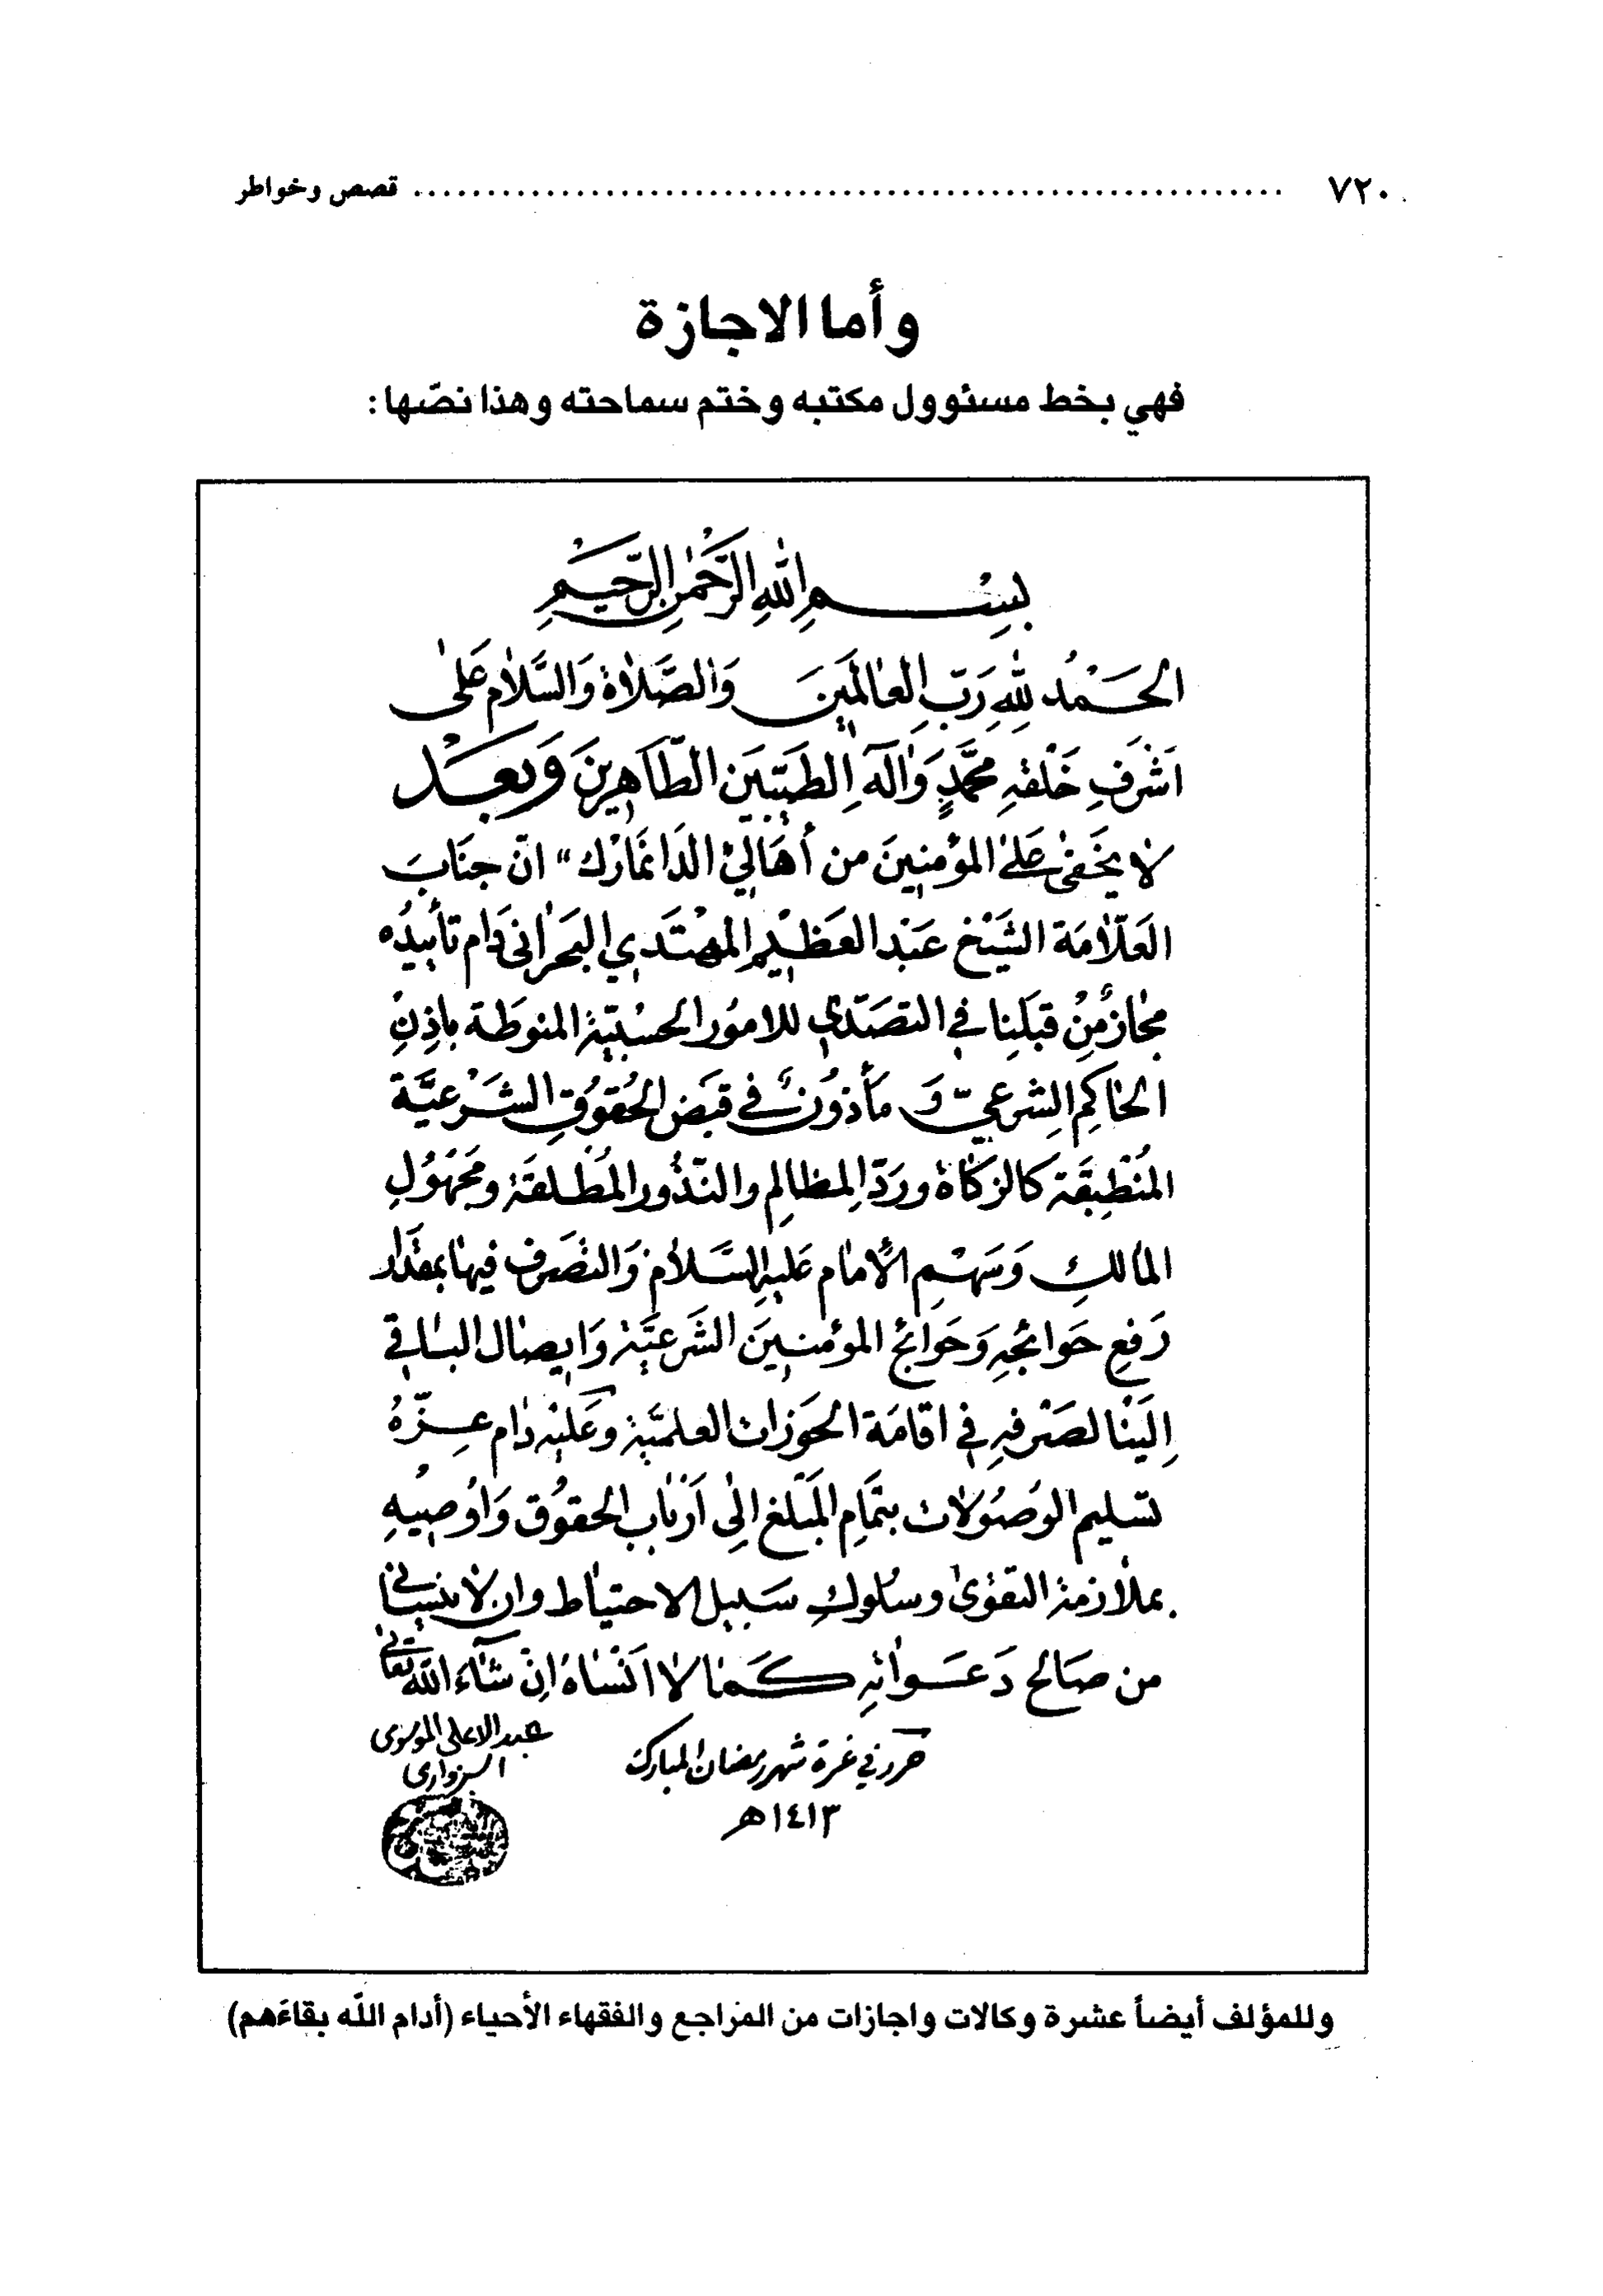 ٧٢٠ ........................................................ قصص وخواطر
وأما الاجازة
فهي بخط مسئوول مكتبه وختم سماحته وهذا نصّها:
بِسْمِ اللهِ الرَّحْمٰنِ الرَّحيمِ
الحَمْدُ لِلّٰهِ رَبِّ العالَمينَ وَالصَّلاةُ وَالسَّلامُ عَلىٰ
اشرَفِ خَلْقِهِ مُحَمَّدٍ وَآلِهِ الطيّبينَ الطّاهِرينَ وَبعَدْ
لا يخَفىٰ عَلىٰ المؤمنينَ من أهَالي الدانمارك" انّ جنابَ
العَلّامَة الشيَخ عَبْد العَظيم المهْتَدي البحَراني دَام تأييدُه
مجازٌ مِنْ قبَلِنا في التصَدّي للامُور الحسْبيّة المنوطَة باِذِنِ
الحاكِم الشرعيّ وَ مأذوُنٌ في قبَض الحُقوُقِ الشَرْعيَّة
المُنْطِبقَة كالزكاة وردّ المظالمِ والنّذُور المُطْلقَة ومجَهُولِ
المالكِ وَسَهْمِ الأمام عَليهِ السَّلام وَالتصَرف فيها بمقدار
رَفعِ حَوائجهِ وَحَوائج المؤمنيِنَ الشَرعيّة وَايصال الباقي
اِلَيْنا لصَرْفهِ في اقامَة الحَوَزات العلميّة وعَليْه دام عِزّهُ
تسَليم الوُصُولات بتمَامِ المَبْلغ الىٰ أرْبابِ الحقوُق وَاوُصيهِ
بملازمة التقوىٰ وسلُوكِ سَبيل الاحتياط وان لا ينسَاني
من صالح دَعَواتهِ كَما لا انْساهُ اِنْ شاءَ الله تعالى
عبد الاعلى الموسوي
السبزواري
حرر في غرة شهر رمضان المبارك
١٤١٣ هـ
وللمؤلف أيضاً عشرة وكالات واجازات من المراجع والفقهاء الأحياء (أدام اللّه بقاءَهم)